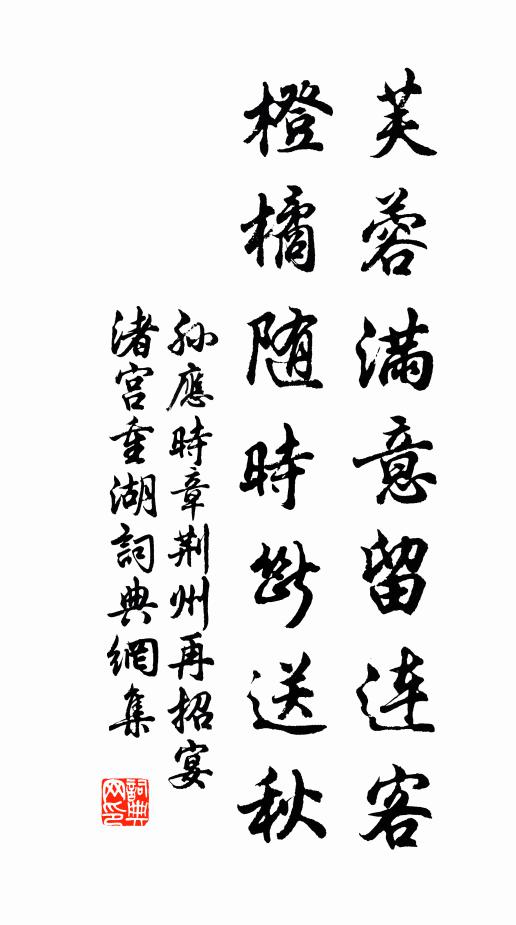 芙蓉滿意留連客
橙橘随時斷送秋
孫應時章荆州再招宴
渚宫重湖詞典網集
詞典网印